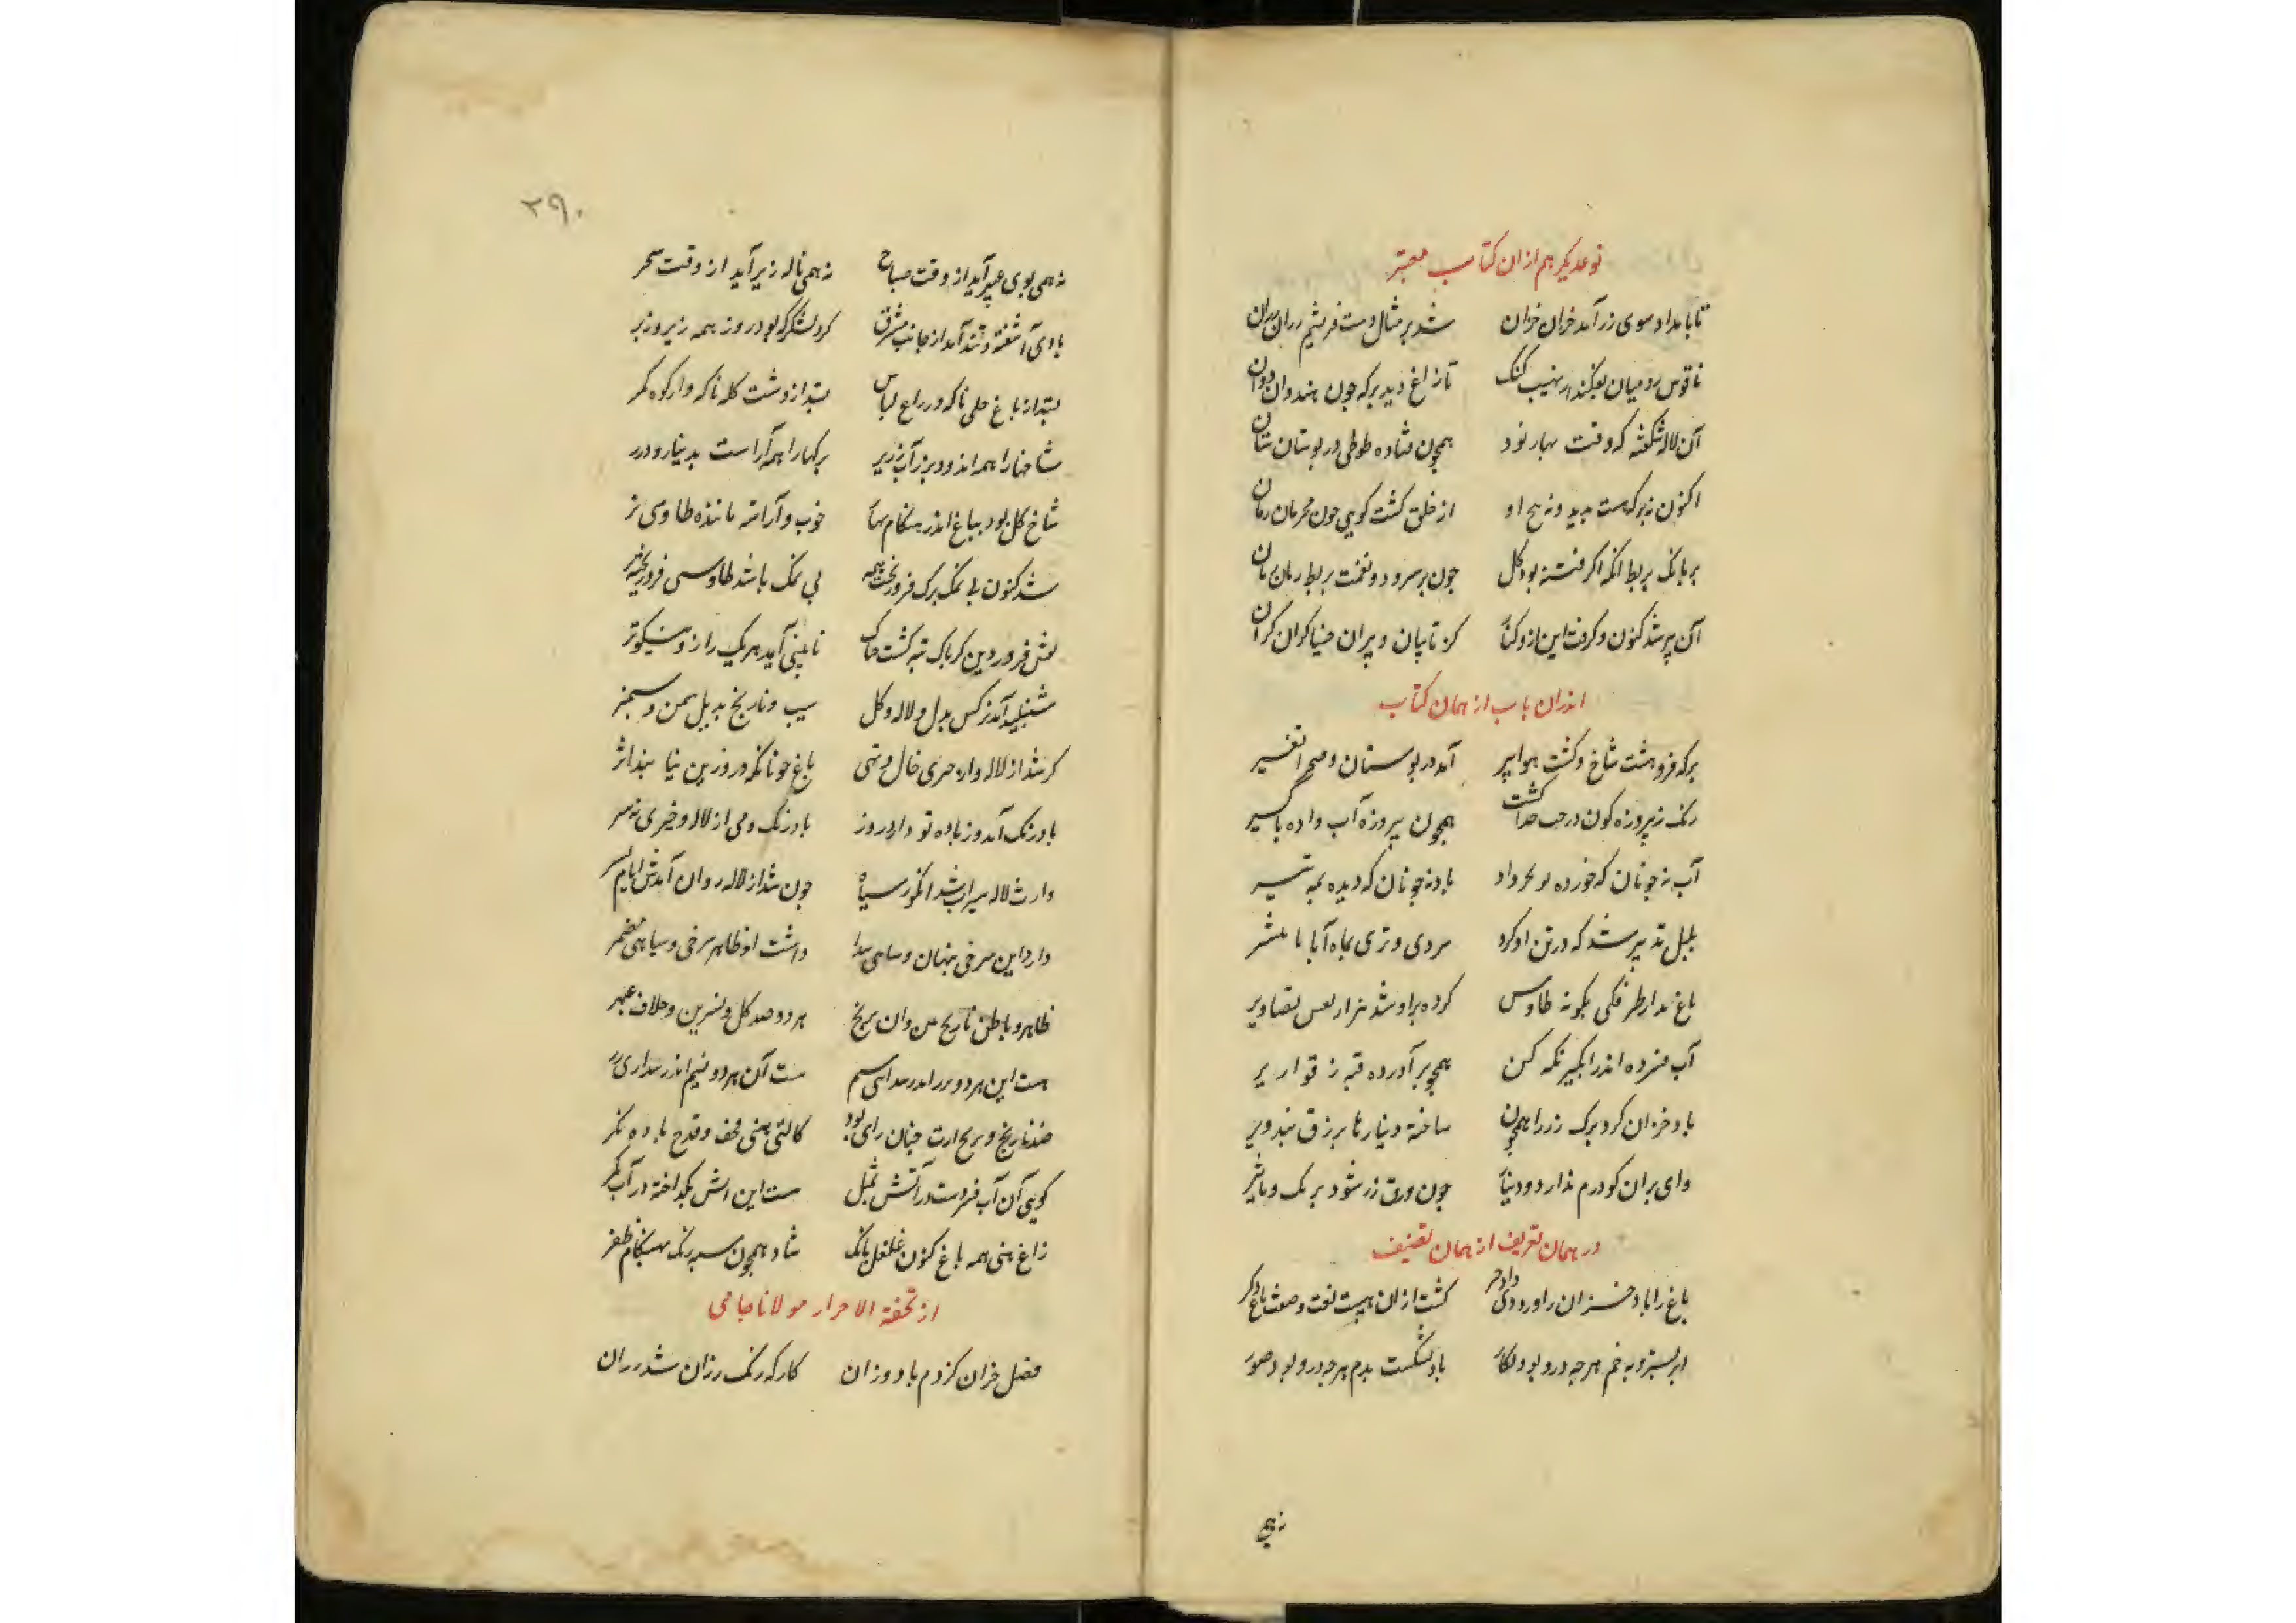 نوعدیکر هم ازان کتاب معتبر
تا بامداد سوی رز آمد خزان خزان شد بر مثال دست فریشم رزان رزان
ناقوس رومیان بفکند از نهیب کنک تا زاغ دید برکه چون هندوان دوان
آن لاله شکفته که وقت بهار بود همچون فتاده طوطی در بوستان ستان
اکنون نه برکه ست بدید و نه هیچ او از خلق کشت کویی چون مجرمان رمان
بر بانک بربط انکه اکر فتنه بود کل چون بر سرود و نغمت بربط زمان زمان
آن پر شد کنون و کرفت این ازو کنار کز تایبان و پیران خنیاکران کران
اندران باب از همان کتاب
برکه فروهشت شاخ و کشت هوا پیر آمد در بوستان و صحرا تغییر
رنک ز پیروزه کون درخت جدا کشت همچون پیروزه آب داده باکسیر
آب نه چونان که خورده بود داد باد نه چونان که دیده تیر
بلبل تدبیر شد که در تن او کرد سردی و تری بماه آبان تاثیر
باغ بکونه طاوس کرده برو شد هزار نقش تصاویر
آب فسرده اندر آبکیر نکه کن همچو برآورده قبه ز قواریر
باد خزان کرد برک رز را همچون ساخته دینارها بزرق و تزویر
وای بران کو درم ندارد و دینار چون ورق زر شود برنک و
در همان تعریف از همان تصنیف
باغ را باد خزان داد خبر کشت ازان هیبت لغت و صفت باغ دکر
ابر بسترد به نم هرچه درو بود نکار باد بشکست بدم هرچه درو بود صور
نه همی
۲۹۰
نه همی بوی عبیر آید از وقت صباح نه همی ناله زیر آید از وقت سحر
بادی آشفته و تند آمد از جانب مشرق کرد لشکر که بود روز همه زیر و زبر
بستد از باغ حلی ناکه و از راغ لباس بستد از دشت کله ناکه و از کوه کمر
شاخها را همه اندود بزر آب زریر برکها را همه آراست بدینار و درر
شاخ کل بود بباغ اندر هنکام بهار خوب و آراسته ماننده طاوس نر
شد کنون بی نمک برک فرو ریخت همه بی نمک باشد طاوسی فرو ریخته پر
نقش فروردین کر پاک تبه کشت چه باک تا ببینی آید هر یک را زو نیکوتر
شنبلید آمد نرکس بدل لاله و کل سیب و نارنج بدیل سمن و سیسنبر
کر شد از لاله و از خیری خالی و تهی باغ چونانکه درو زین نیابند اثر
بادرنک آمد و ز باده تو داد روز بادرنک و می از لاله و خیری نه بس
وارث لاله سیراب شد انکور سیاه چون شد از لاله روان آمدش ایام بسر
دارد این سرخی پنهان و سیاهی پیدا داشت او ظاهر سرخی و سیاهی مضمر
ظاهر و باطن نارنج من و ان ترنج هر دو صد کل و نسرین و خلاف عبهر
هست این هر دو زر اندر سیم هست آن هر دو سیم اندر
ضد نارنج و ترنج ارت چنان رای بود کالتی بینی تحف و قدح باده نکر
کویی آن آب فسردست در آتش بمثل هست این آتش بکداخته در آب مکر
زاغ بینی همه باغ کنون غلغل بانک شاد همچون سپه ترک بهنکام ظفر
از تحفة الاحرار مولانا جامی
فصل خزان کز دم باد وزان کارکه رنک رزان شد رزان